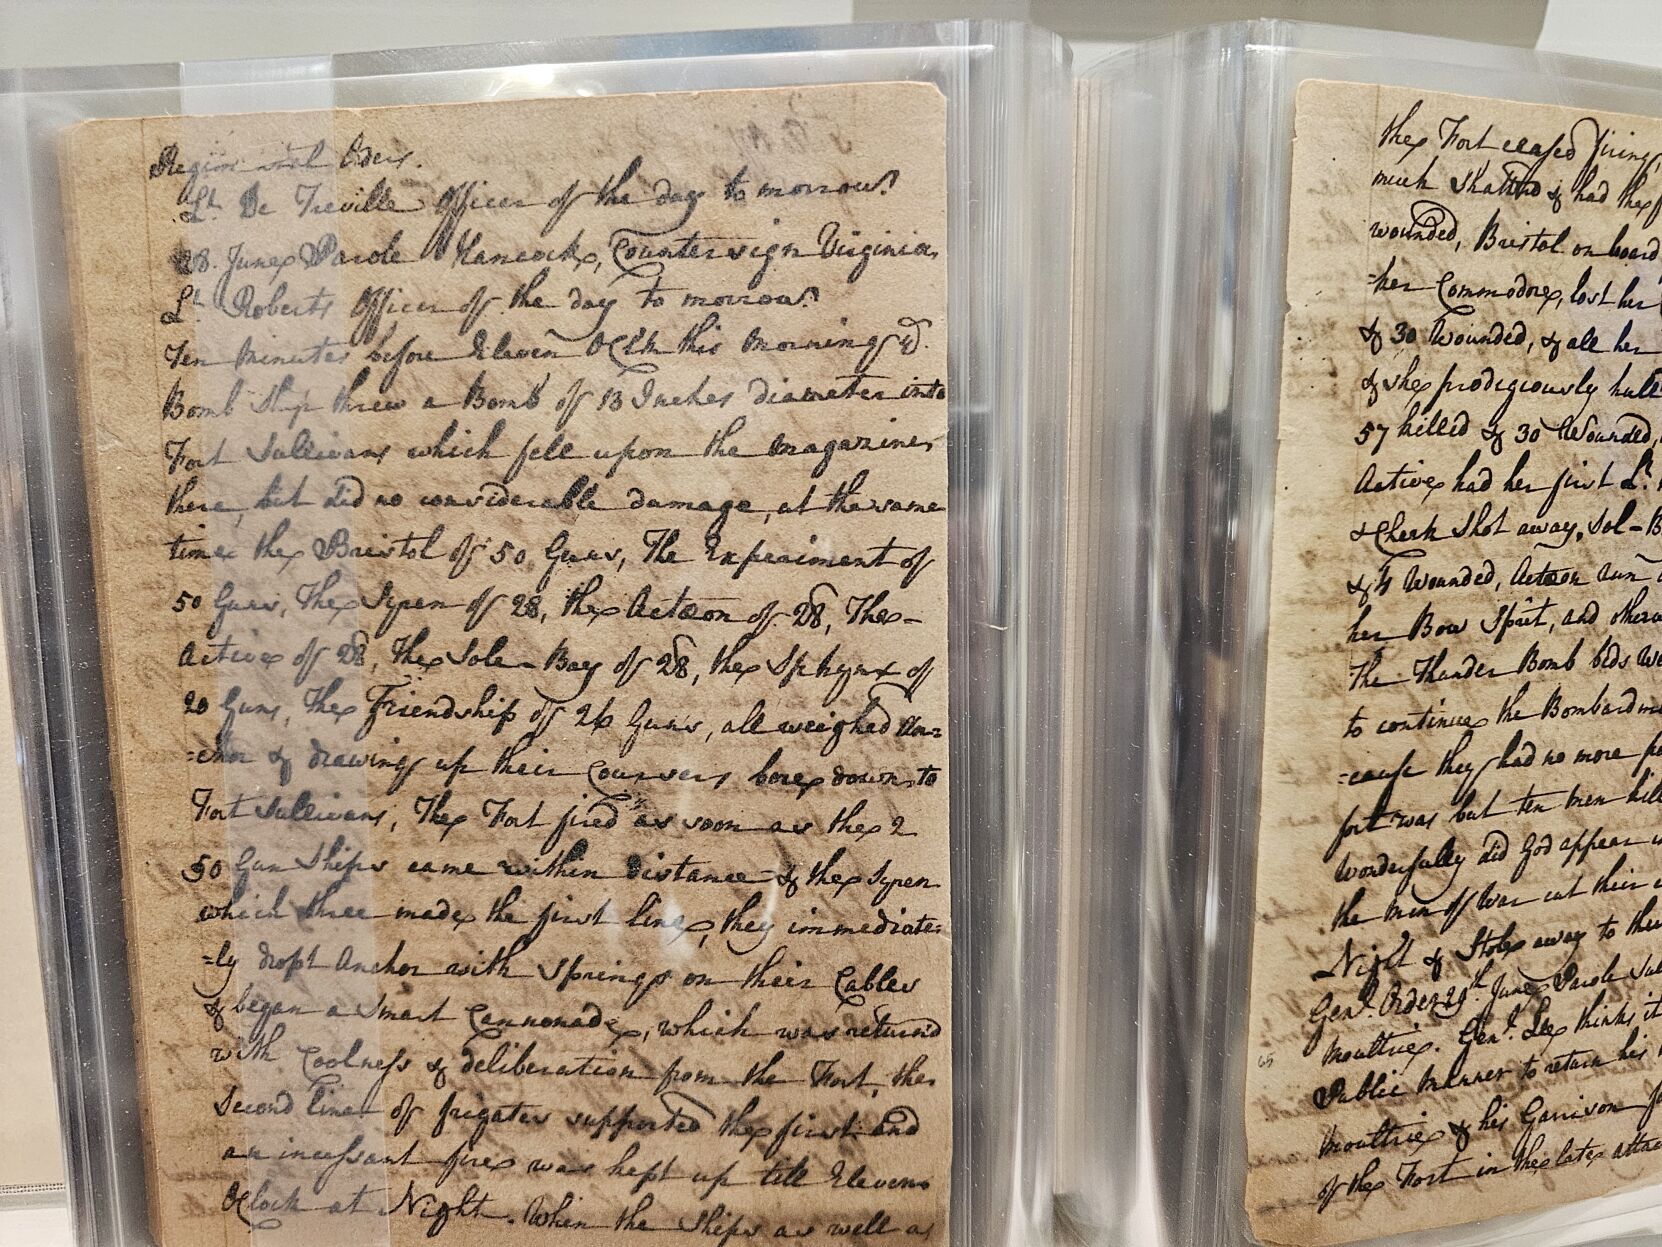 Regimental Orders.
Lt. De Treville Officer of the day to morrow
28. June Parole Hancock, Countersign Virginia
Lt. Roberts Officer of the day to morrow
Ten minutes before Eleven OClk this morning
Bomb Ship threw a Bomb of 13 Inches diameter into
Fort Sullivans which fell upon the magazine
there, but did no considerable damage, at the same
time the Bristol of 50 Guns, The Experiment of
50 Guns, The Syren of 28, the Actæon of 28, The-
Active of 28, The Sole-Bay of 28, the Sphynx of
20 Guns, The Friendship of 26 Guns, all weighed An=
=chor & drawing up their Courses bore down to
Fort Sullivans, The Fort fired as soon as the 2
50 Gun Ships came within distance & the Syren
which three made the first line, they immediate=
=ly dropt Anchor with Springs on their Cables
& began a smart Cannonade, which was returnd
with Coolness & deliberation from the Fort, the
Second line of frigates supported the first and
an incessant fire was kept up till Eleven
OClock at Night. When the Ships as well as
the Fort ceased firing,
much Shatterd & had the
wounded, Bristol on board
=her Commodore, lost her
& 30 Wounded, & all her
& she prodigiously hull
57 killed & 30 Wounded,
Active had her first Lt.
& Cheek Shot away, Sol-B
& 4 Wounded, Actæon run
her Bow Sprit, and otherw
The Thunder Bomb beds we
to continue the Bombardme
=cause they had no more po
fort was but ten men kill
Wonderfully did God appear
the men of War cut their
Night & Stole away to the
Genl. Order 29th June Parole Sul
Moultrie. Genl. Lee thinks it
65
Public Manner to return his
Moultrie & his Garrison fo
of the Fort in the late attac